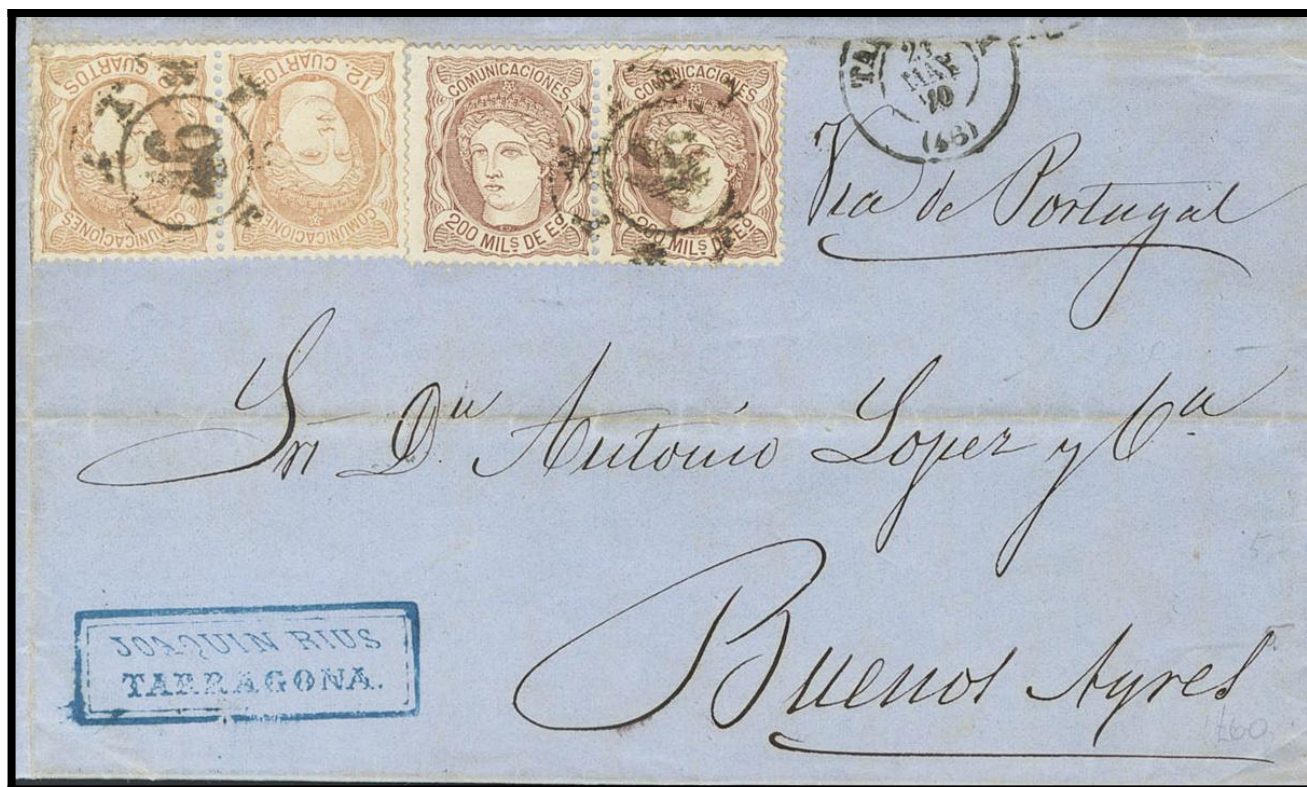 12. CUARTOS
COMUNICACIONES
COMUNICACIONES
200 MILS DE Eo.
COMUNICACIONES
200 MILS DE Eo.
MAR
70
(46)
Via de Portugal
Sr. Dn Antonio Lopez y Ca
Buenos Ayres
JOAQUIN RIUS
TARRAGONA.